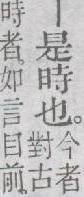 ｜是時也。今者
對古
時者。如言目前